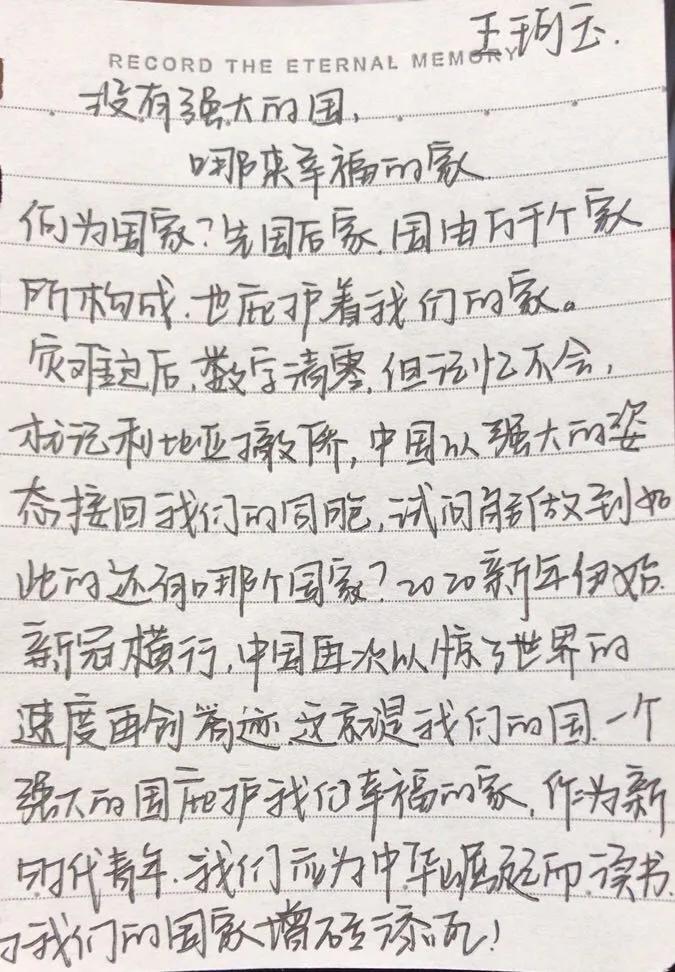 王珣玉.
RECORD THE ETERNAL MEMORY
没有强大的国,
哪来幸福的家
何为国家?先国后家,国由万千个家
所构成,也庇护着我们的家。
灾难过后,数字清零,但记忆不会,
忘记利比亚撤侨,中国以强大的姿
态接回我们的同胞,试问能做到如
此的还有哪个国家?2020新年伊始.
新冠横行,中国再次以惊了世界的
速度再创奇迹.这就是我们的国.一个
强大的国庇护我们幸福的家,作为新
时代青年.我们应为中华崛起而读书.
为我们的国家增砖添瓦!